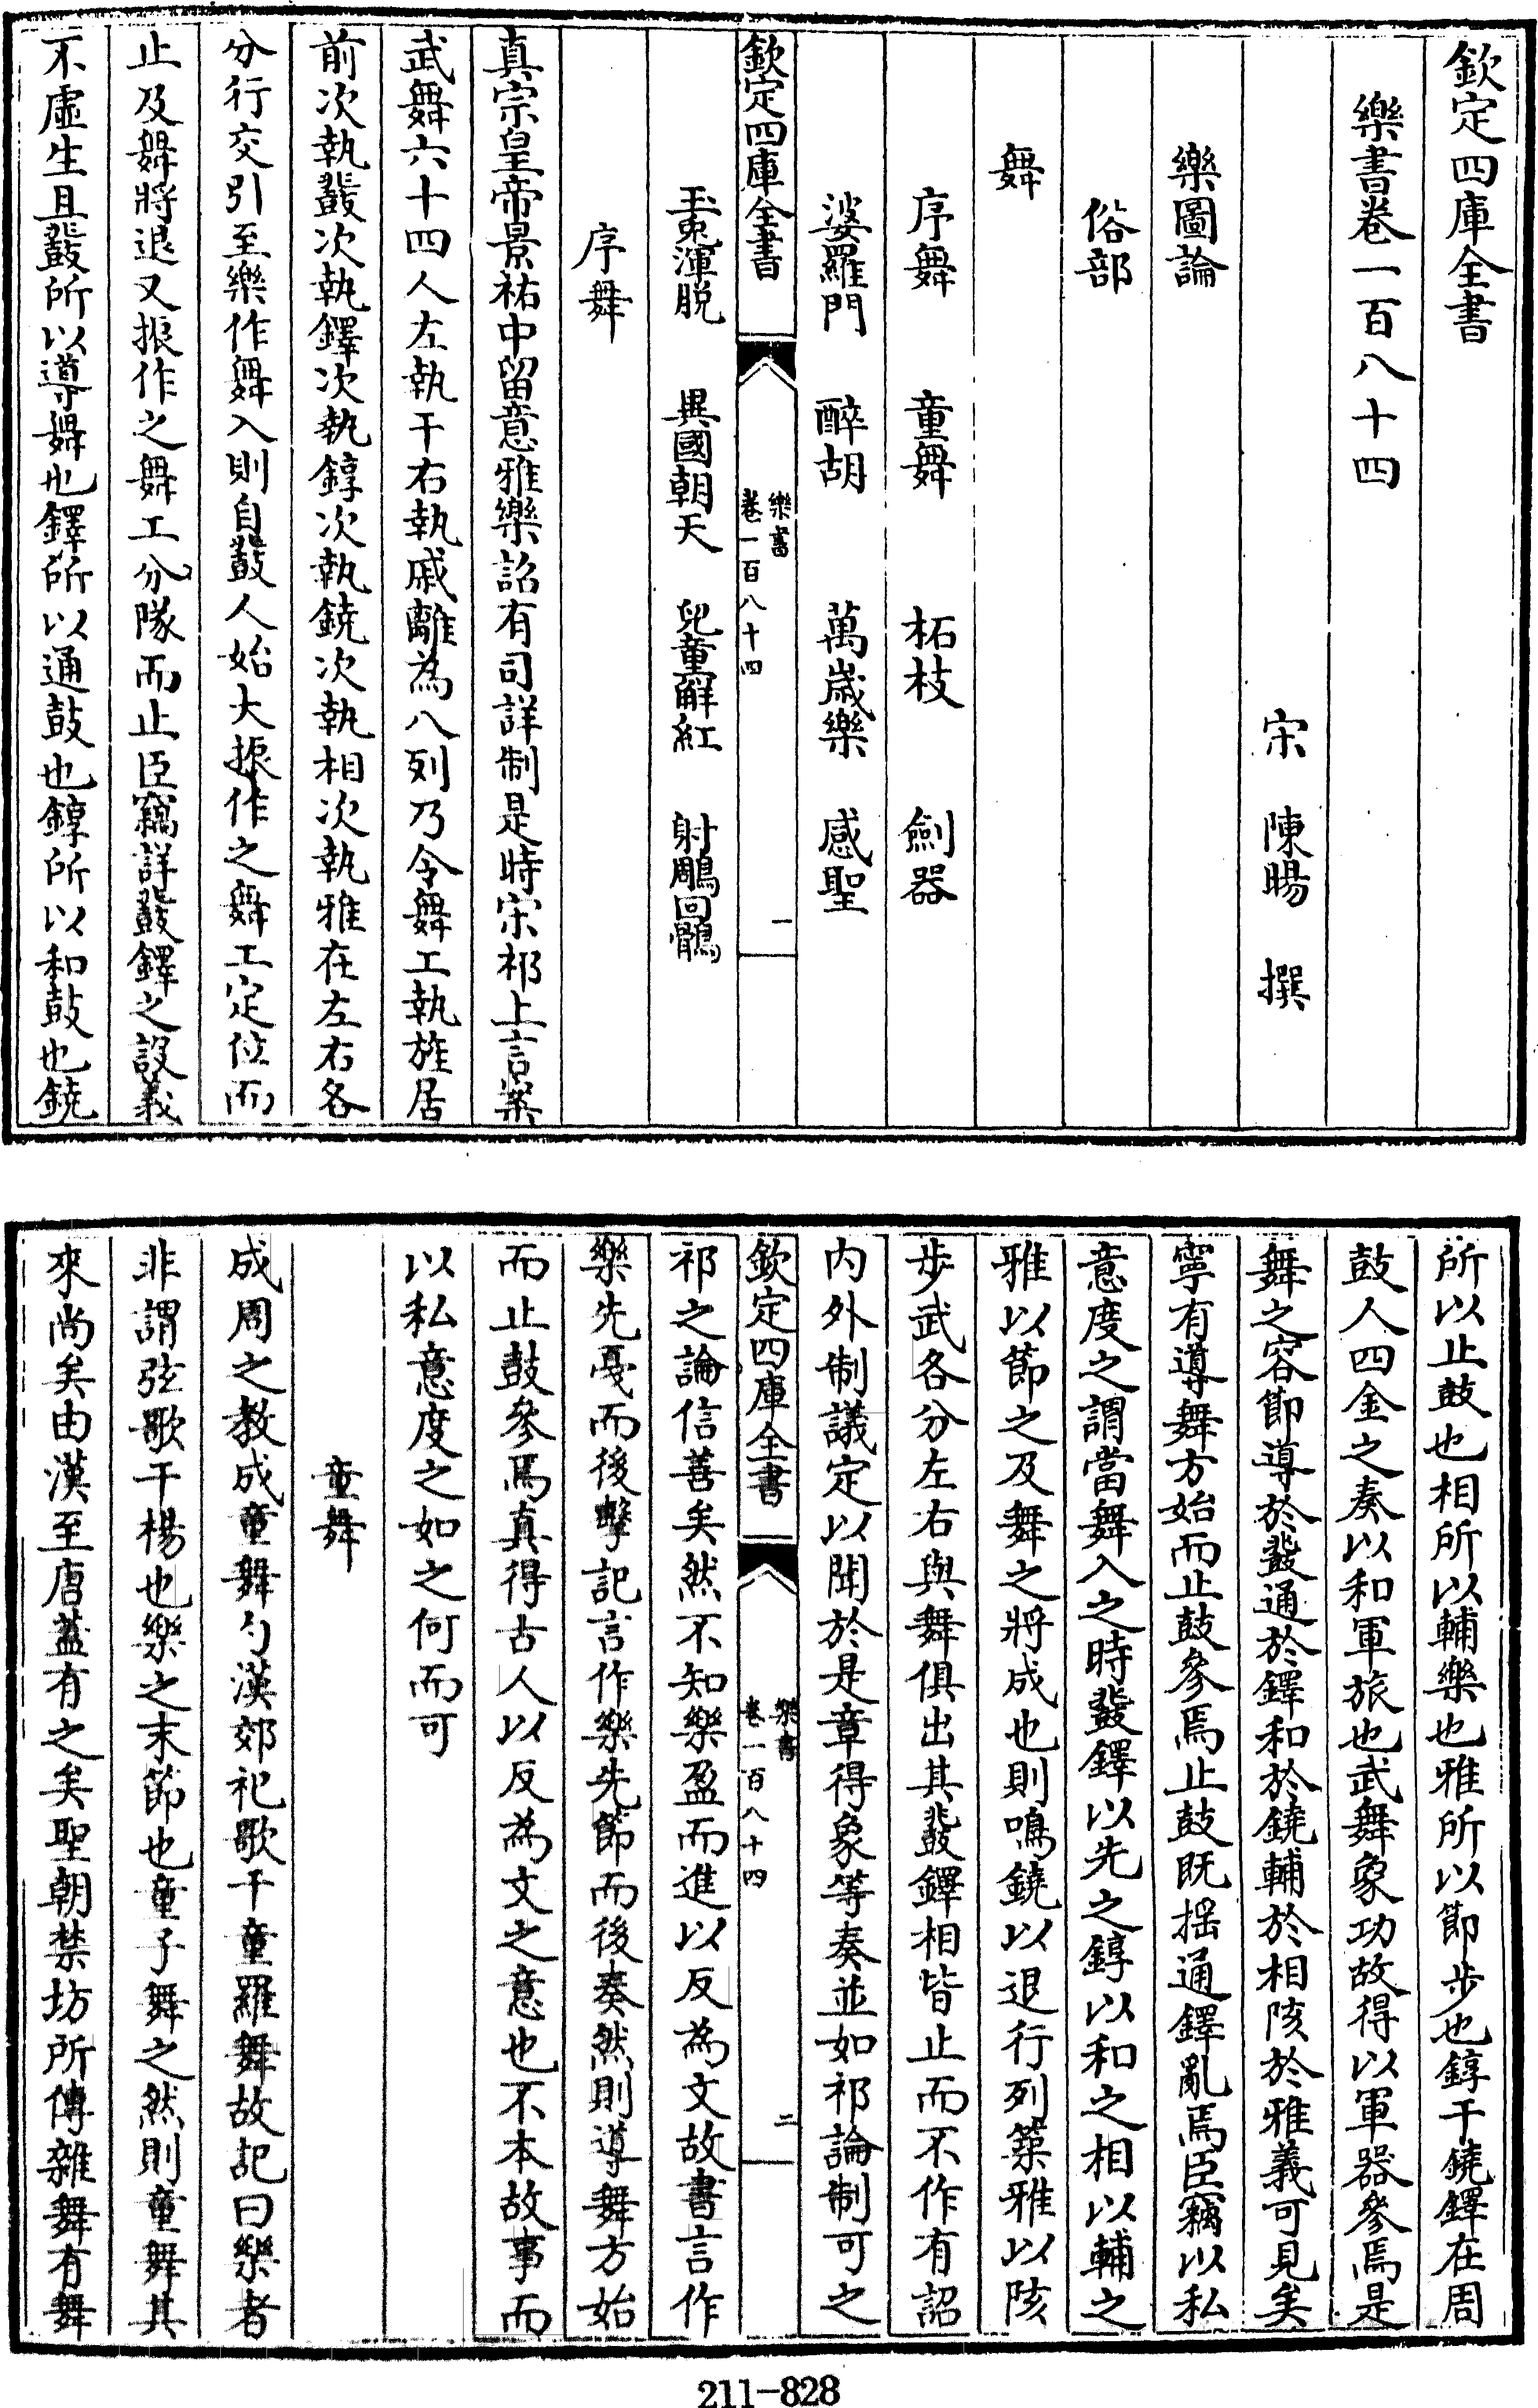 欽定四庫全書
樂書卷一百八十四
宋　陳暘　撰
樂圖論
俗部
舞
序舞　童舞　柘枝　劍器
婆羅門　醉胡　萬歲樂　感聖
欽定四庫全書　樂書卷一百八十四　一
玉兎渾脱　異國朝天　兒童解紅　射鵰回鶻
序舞
真宗皇帝景祐中留意雅樂詔有司詳制是時宋祁上言案
武舞六十四人左執干右執戚離為八列乃令舞工執旌居
前次執鼗次執鐸次執錞次執鐃次執相次執雅在左右各
分行交引至樂作舞入則自鼓人始大振作之舞工定位而
止及舞將退又振作之舞工分隊而止臣竊詳鼗鐸之設義
不虛生且鼗所以導舞也鐸所以通鼓也錞所以和鼓也鐃
所以止鼓也相所以輔樂也雅所以節步也錞干鐃鐸在周
鼓人四金之奏以和軍旅也武舞象功故得以軍器參焉是
舞之容節導於鼗通於鐸和於鐃輔於相陔於雅義可見矣
寧有導舞方始而止鼓參焉止鼓既搖通鐸亂焉臣竊以私
意度之謂當舞入之時鼗鐸以先之錞以和之相以輔之
雅以節之及舞之將成也則鳴鐃以退行列築雅以陔
步武各分左右與舞俱出其鼗鐸相皆止而不作有詔
内外制議定以聞於是章得象等奏並如祁論制可之
欽定四庫全書　樂書卷一百八十四　二
祁之論信善矣然不知樂盈而進以反為文故書言作
樂先戞而後擊記言作樂先節而後奏然則導舞方始
而止鼓參焉真得古人以反為文之意也不本故事而
以私意度之如之何而可
童舞
成周之教成童舞勺漢郊祀歌千童羅舞故記曰樂者
非謂弦歌干楊也樂之末節也童子舞之然則童舞其
來尚矣由漢至唐葢有之矣聖朝禁坊所傳雜舞有舞
211-828